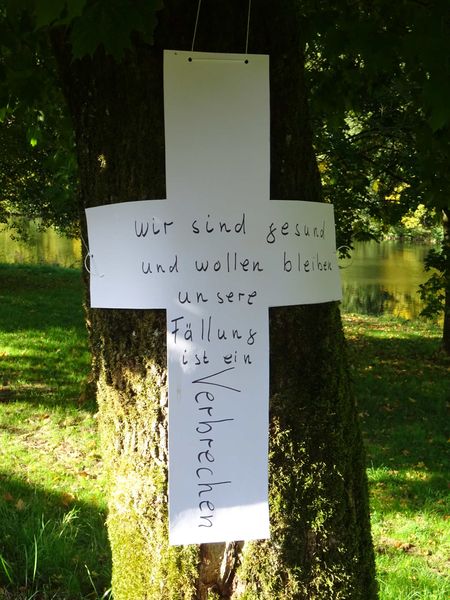 Wir sind gesund
und wollen bleiben
unsere
Fällung
ist ein
Verbrechen